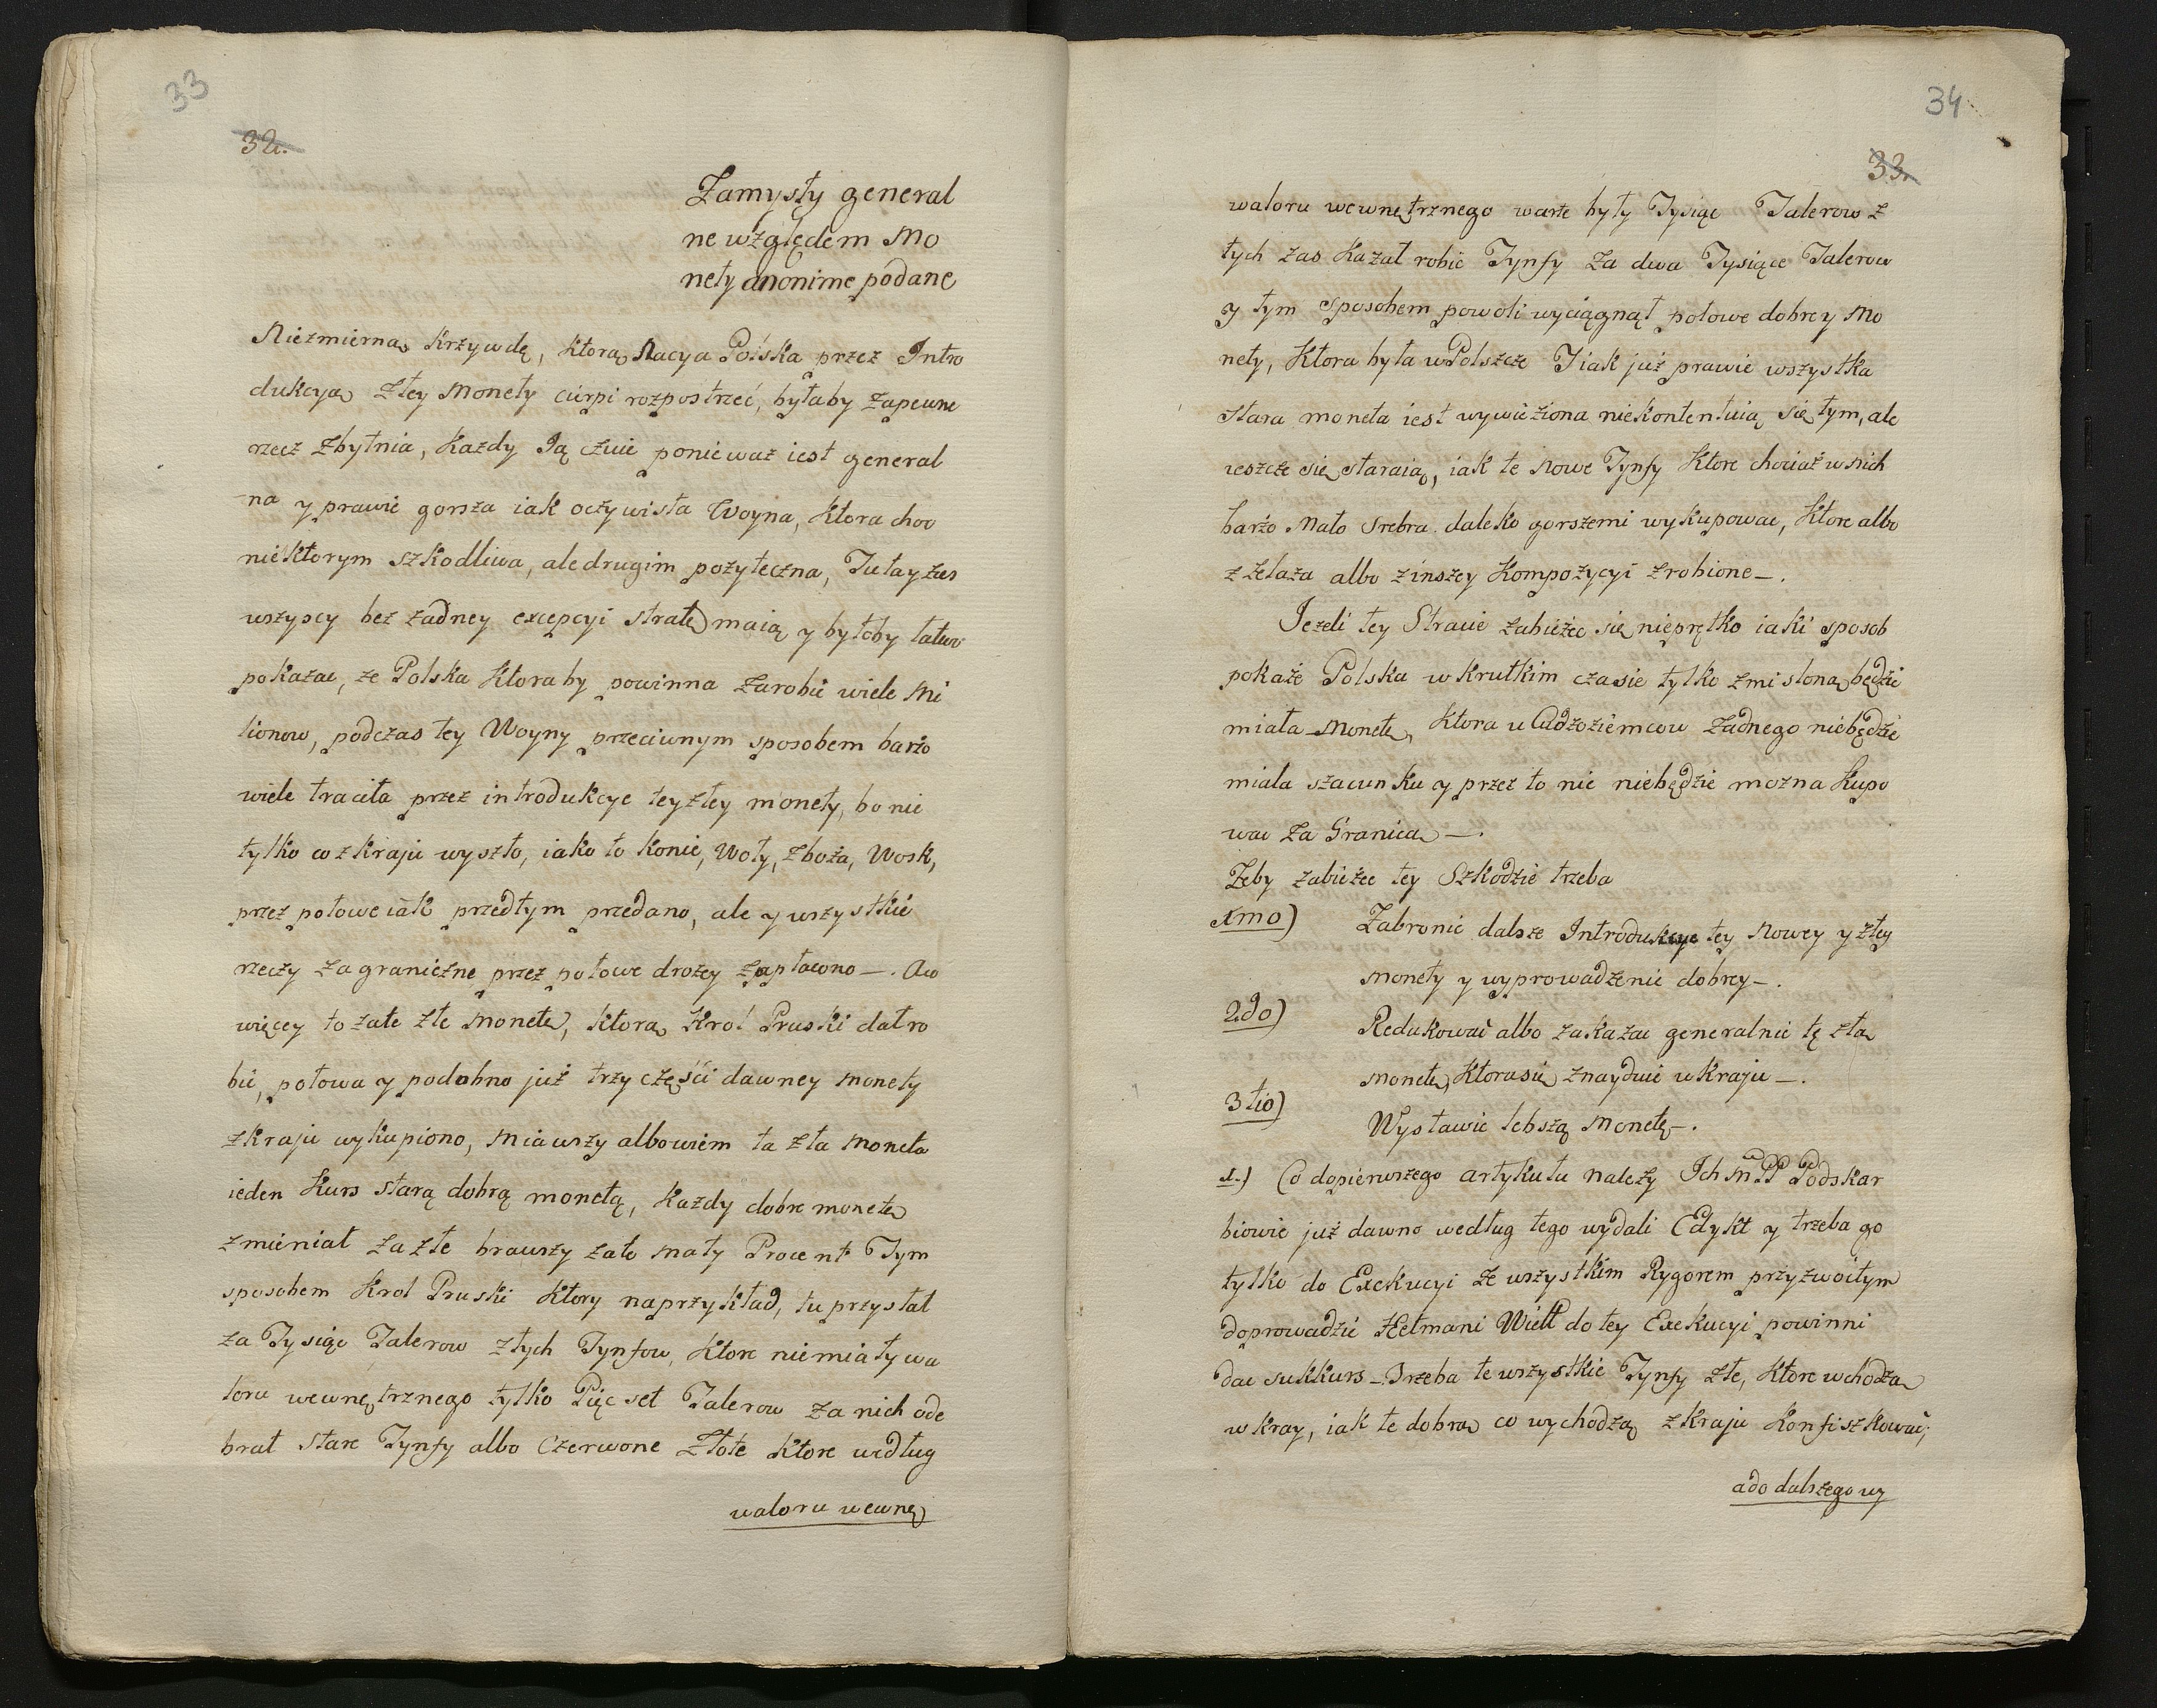 33
32.
Zamysły general
ne względem Mo
nety anonime podane
Niezmierną Krzywdę, ktorą Nacya Polska przez Intro
dukcyą złey Monety cierpi rozpostrzeć, byłaby zapewne
rzecz zbytnia, Każdy Ją czuie ponieważ iest general
-na y prawie gorsza iak oczywista Woyna, Ktora choc
niektorym szkodliwa, ale drugim pożyteczna, Tutay zas
wszyscy bez żadney excepcyi stratę maią y byłoby łatwo
pokazac, że Polska Ktoraby powinna zarobić wiele Mi
lionow, podczas tey Woyny przeciwnym sposobem barzo
wiele traciła przez introdukcye tey złey monety, bo nie
tylko co z kraju wyszło, iako to konie, Woły, zboża, Wosk,
przez połowe iak przedtym przedano, ale y wszystkie
rzeczy zagraniczne przez połowe drożey zapłacono —. Aco
więcey to zate złe Monetę, ktorą Krol Pruski dał ro
bić, połowa y podobno już trzy części dawney Monety
z kraju wykupiono, Miawszy albowiem ta zła Moneta
ieden Kurs starą dobrą monetą, Każdy dobre monetę
zmieniał za złe brawszy zato mały Procent Tym
sposobem Krol Pruski Ktory naprzykład, tu przysłał
za Tysiąc Talerow złych Tynfow, Ktore niemiały wa
loru wewnętrznego tylko Pięc set Talerow za nich ode
brał stare Tynfy albo Czerwone Złote Ktore według
waloru wewnę
34
33.
waloru wewnętrznego warte były Tysiąc Talerow z
tych zas Kazał robić Tynfy za dwa Tysiące Talerow
y tym sposobem powoli wyciągnął połowe dobrey Mo
nety, Ktora była w Polszcze J iak już prawie wszystka
stara moneta iest wywieziona niekontentuią się tym, ale
ieszcze się staraią, iak te nowe Tynfy Ktore chociaż w nich
barzo Mało Srebra daleko gorszemi wykupowac, Ktore albo
z żelaza albo z inszey Kompozycyi zrobione —.
Jeżeli tey Stracie zabieżec się nieprętko iaki sposob
pokaże Polska w Krutkim czasie tylko zmisloną będzie
miała Monetę, Ktora u Cudzoziemcow żadnego niebędzie
miala szacunku y przez to nic niebędzie można Kupo
wac za Granicą —.
Zeby zabieżec tey Szkodzie trzeba
1mo) Zabronic dalsze Introdukcye tey Nowey y złey
Monety y wyprowadzenie dobrey —.
2do) Redukować albo zakazac generalnie tę złą
Monetę, Ktora się znayduie w Kraju —.
3tio) Wystawic lebszą Monetę —.
1.) Co do pierwszego artykułu należy Ich M PP Podskar
biowie już dawno według tego wydali Edykt y trzeba go
tylko do Exekucyi ze wszystkim Rygorem przyzwoitym
doprowadzić Hetmani Wiell do tey Exekucyi powinni
dac sukkurs — Trzeba te wszystkie Tynfy złe, Ktore wchodzą
w Kray, iak te dobrą co wychodzą z Kraju Konfiszkować,
a do dalszego wy